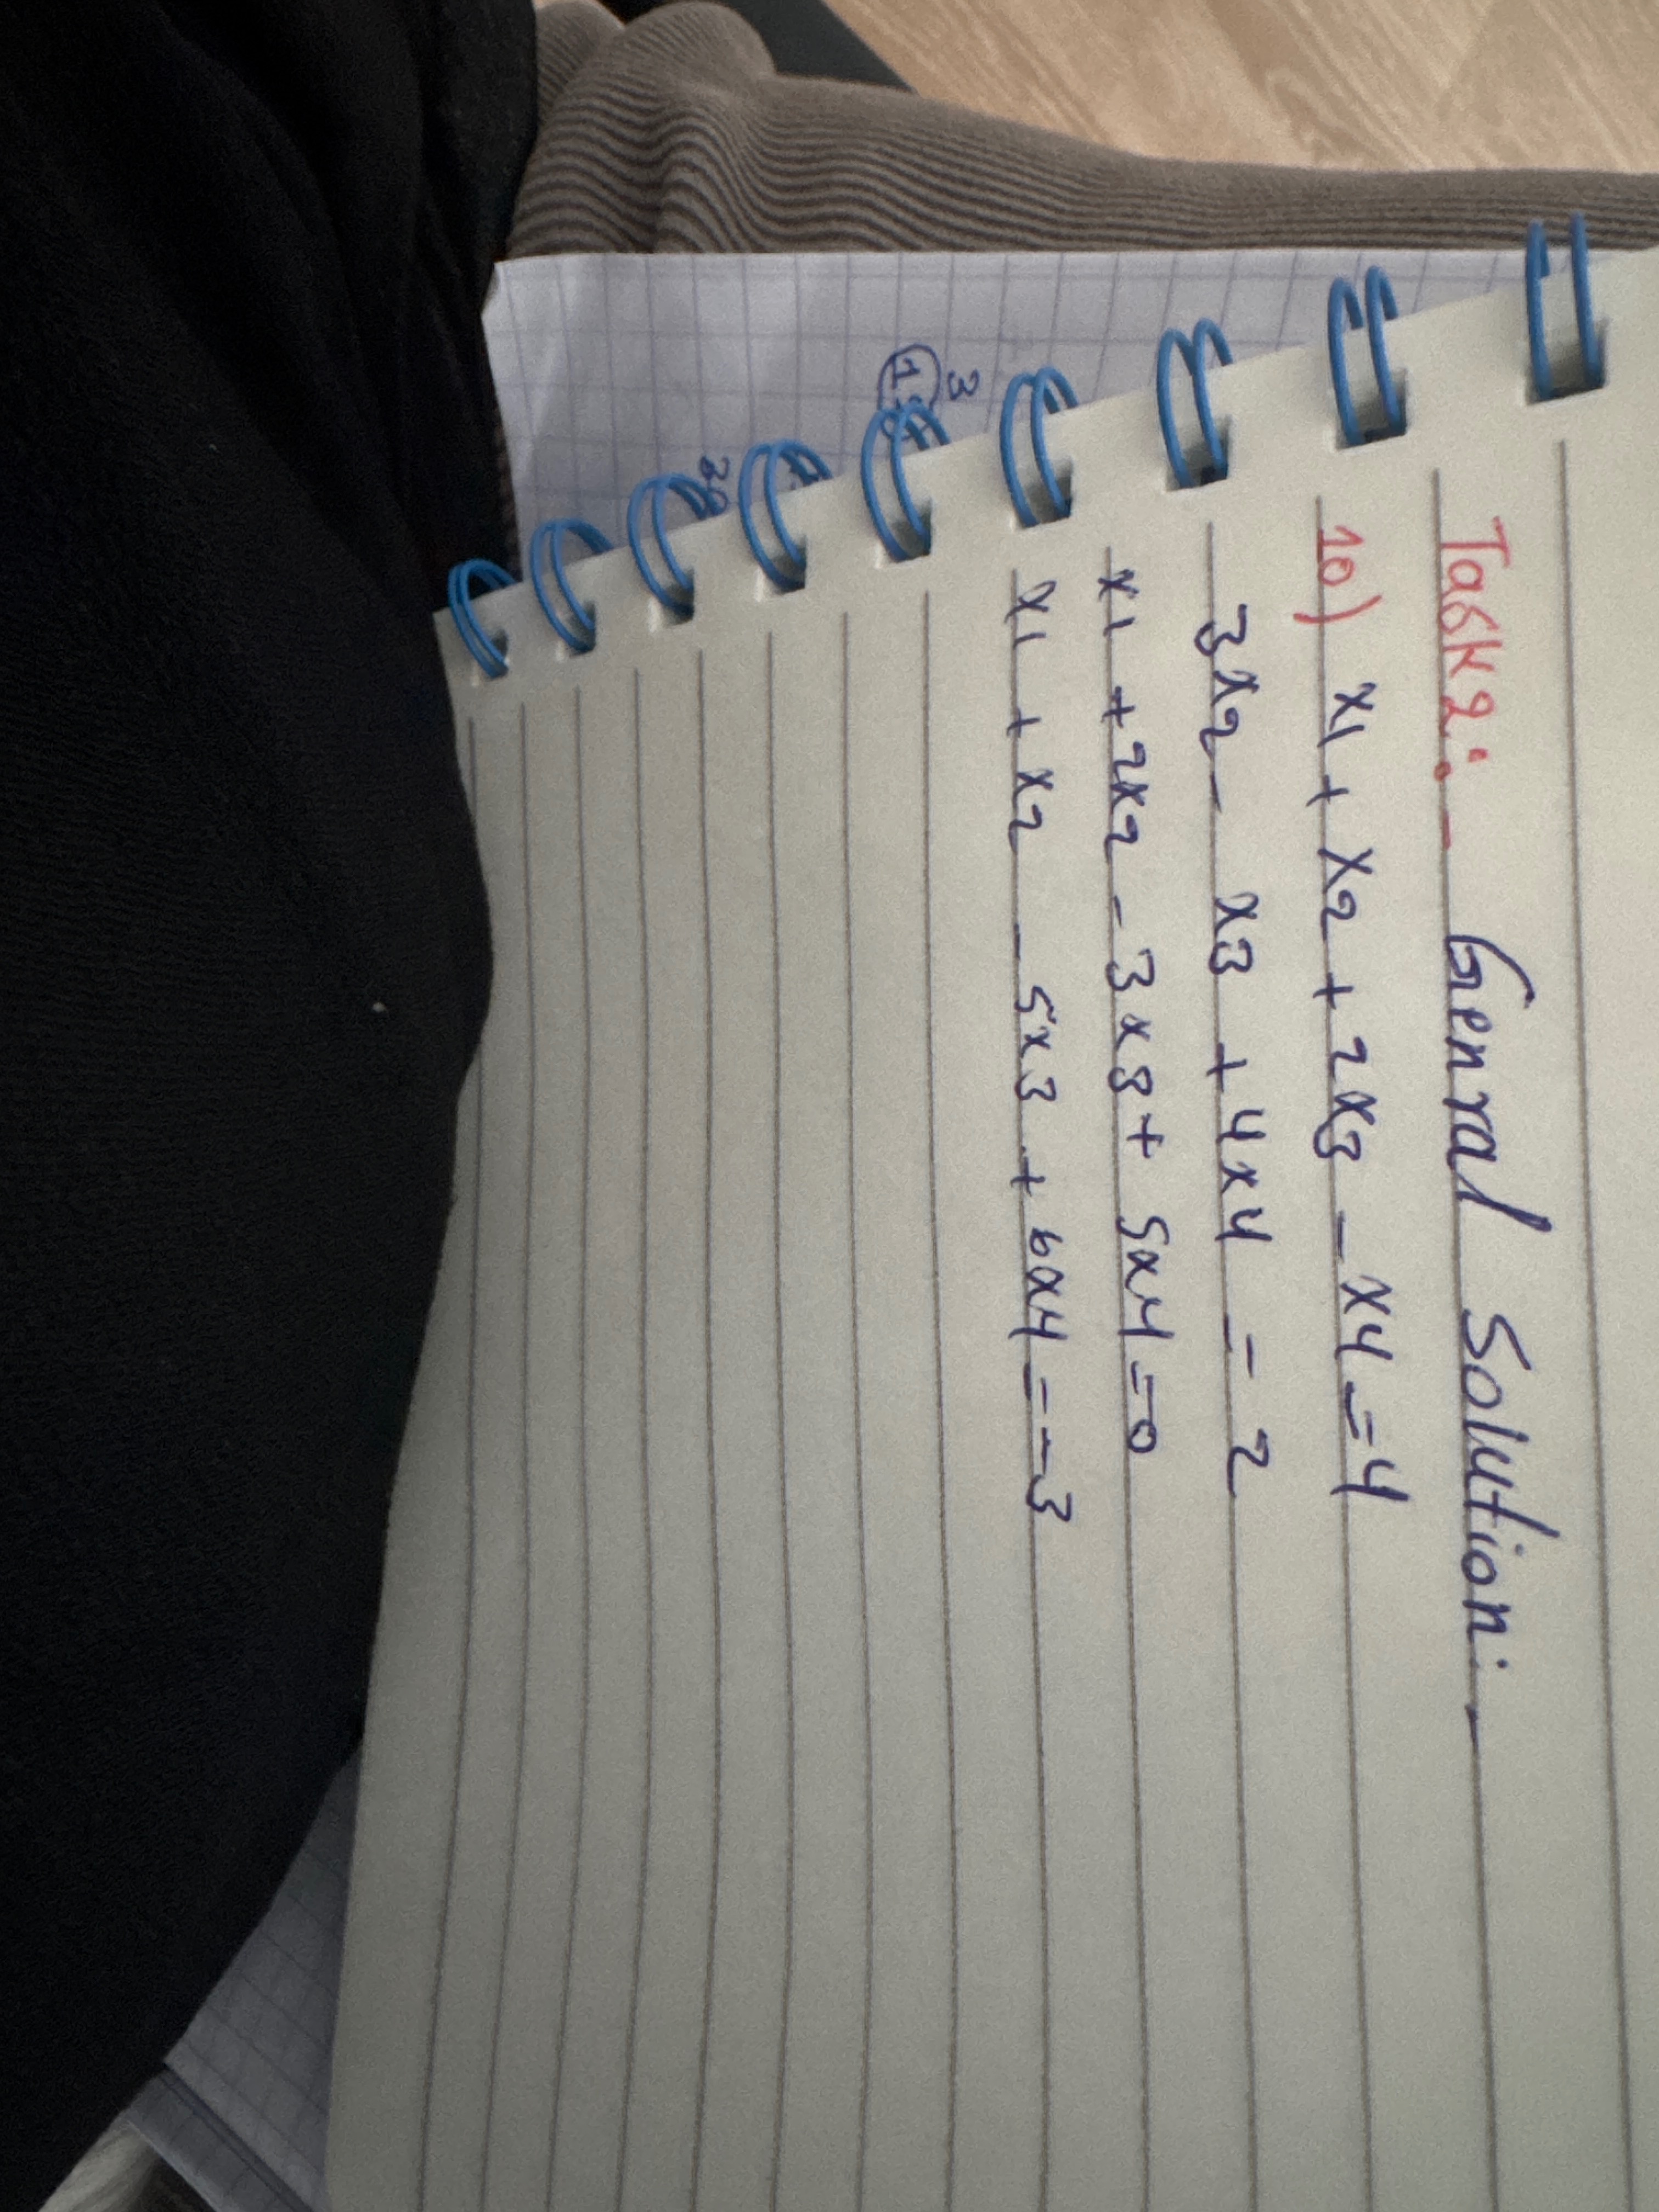 Task 2:- General Solution:-
10) x1 + x2 + 2x3 - x4 = 4
3x2 - x3 + 4x4 = 2
x1 + 2x2 - 3x3 + 5x4 = 0
x1 + x2 - 5x3 + 6x4 = -3
3